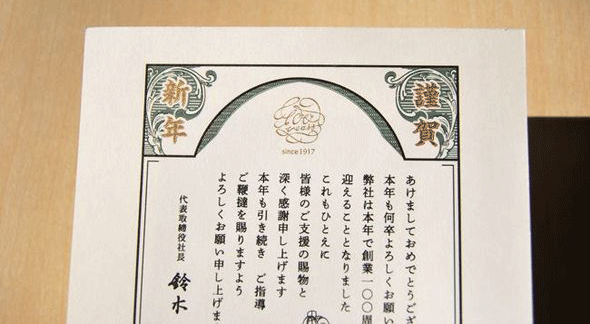 謹賀
新年
100
years
since 1917
あけましておめでとうござ
本年も何卒よろしくお願い
弊社は本年で創業一〇〇周
迎えることとなりました
これもひとえに
皆様のご支援の賜物と
深く感謝申し上げます
本年も引き続き ご指導
ご鞭撻を賜りますよう
よろしくお願い申し上げま
代表取締役社長 鈴木